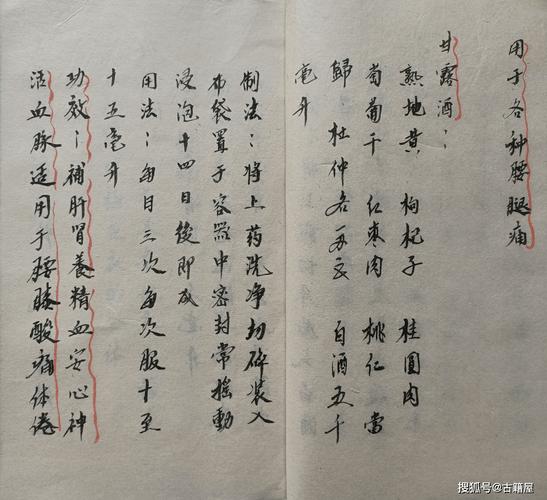 用于各种腰腿痛
甘露酒：
熟地黄 枸杞子 桂圆肉
葡萄干 红枣肉 桃仁 當
歸 杜仲各 白酒五千
毫升
制法：将上药洗净切碎装入
布袋置于容器中密封常摇動
浸泡十四日後即成
用法：每日三次每次服十至
十五毫升
功效：補肝腎養精血安心神
活血脉适用于腰膝酸痛体倦
搜狐号@古籍屋